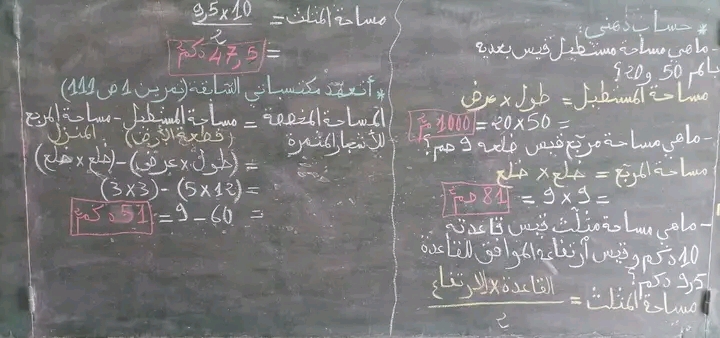 * حساب ذهني:
- ما هي مساحة مستطيل قيس بعديه
بالم 50 و 20؟
مساحة المستطيل = طول × عرض
= 20×50 = 1000 م²
- ما هي مساحة مربع قيس ضلعه 9 صم؟
مساحة المربع = ضلع × ضلع
= 9×9 = 81 صم²
- ما هي مساحة مثلث قيس قاعدته
10 دكم و قيس ارتفاعه الموافق للقاعدة
9,5 دكم؟
مساحة المثلث = القاعدة × الارتفاع
2
مساحة المثلث = 9,5×10
2
= 47,5 دكم²
* أتعهد مكتسباتي السابقة (تمرين 1 ص 111)
المساحة المخصصة = مساحة المستطيل - مساحة المربع
للأشجار المثمرة (قطعة الأرض) المنزل
= (طول × عرض) - (ضلع × ضلع)
= (5×12) - (3×3)
= 60 - 9 = 51 دكم²